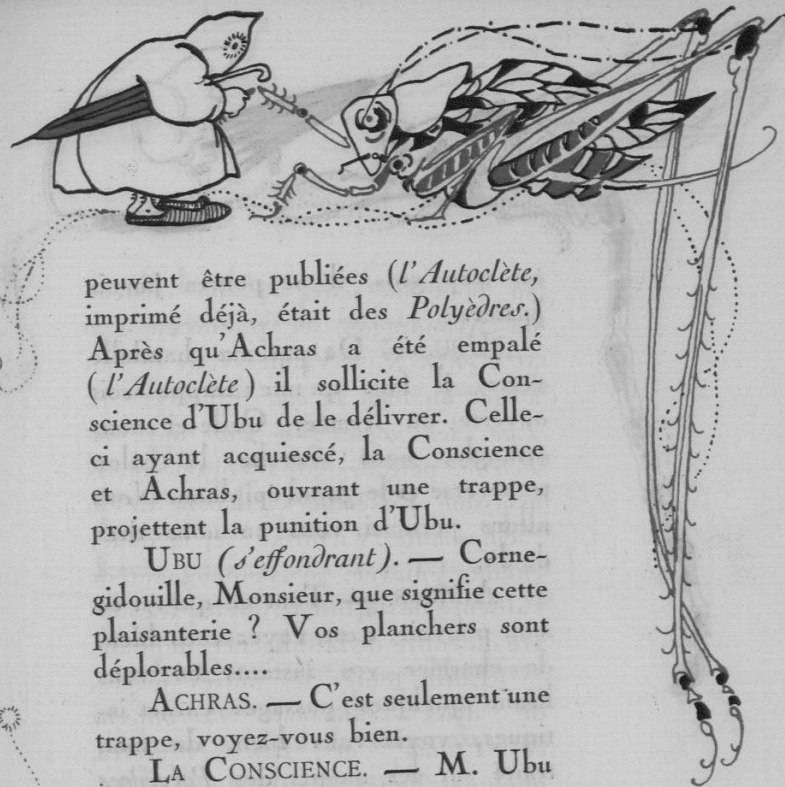 peuvent être publiées (l'Autoclète,
imprimé déjà, était des Polyèdres.)
Après qu'Achras a été empalé
(l'Autoclète) il sollicite la Con-
science d'Ubu de le délivrer. Celle-
ci ayant acquiescé, la Conscience
et Achras, ouvrant une trappe,
projettent la punition d'Ubu.
UBU (s'effondrant). — Corne-
gidouille, Monsieur, que signifie cette
plaisanterie ? Vos planchers sont
déplorables....
ACHRAS. — C'est seulement une
trappe, voyez-vous bien.
LA CONSCIENCE. — M. Ubu